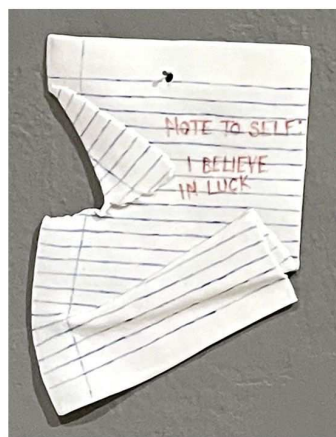 NOTE TO SELF:
I BELIEVE
IN LUCK